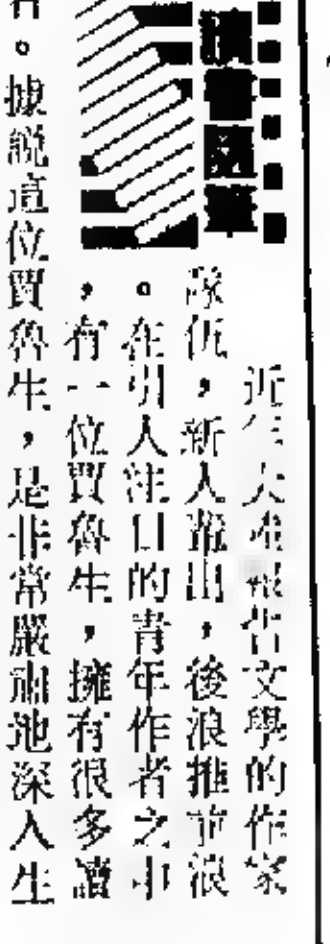 讀書隨筆
近年大陸報告文學的作家
隊伍，新人輩出，後浪推前浪
。在引人注目的青年作者之中
，有一位賈魯生，擁有很多讀
者。據説這位賈魯生，是非常嚴肅地深入生